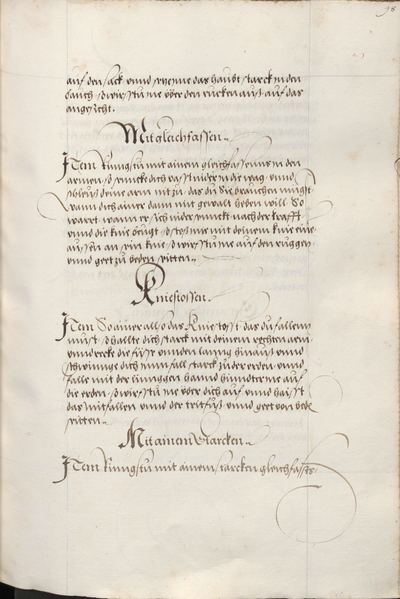 98
auf den sack vnnd spenne das haubt starck in den
bauch, so wirfstu ine über den rucken auß auf das
angesicht.
Mit gleichfassen.
Item Ringstu mit ainem gleichfassenns in den
armen, so senck dich vast nider in die wag vnnd
schleuß deine arm nit zu das du sie brauchen mügst
wann dich ainer dann mit gewalt heben will. So
wart wann er sich nider senckt nach der krafft
vnnd die knie beugt, so stoß ine mit deinem knie eine
aussen an sein knie, so wirfstu ine auf den ruggen
vnnd geet zu beden seitten.
Kniestossen.
Item So ainer also das Knie stost das du fallenn
must, so hallte dich starck mit deinem rechten arm
vnnd recke die füß vonden lanng hinauß vnnd
schwinnge dich im fall starck zu der erden vnnd
falle mit der linnggen hannd hinndter ine auf
die erden, so wirfstu ine über dich auß vnnd haist
das mitfallen vnnd der trit fuß vnnd geet von bede
seitten.
Mit ainem Starcken.
Item Ringstu mit ainem starcken gleichfassens